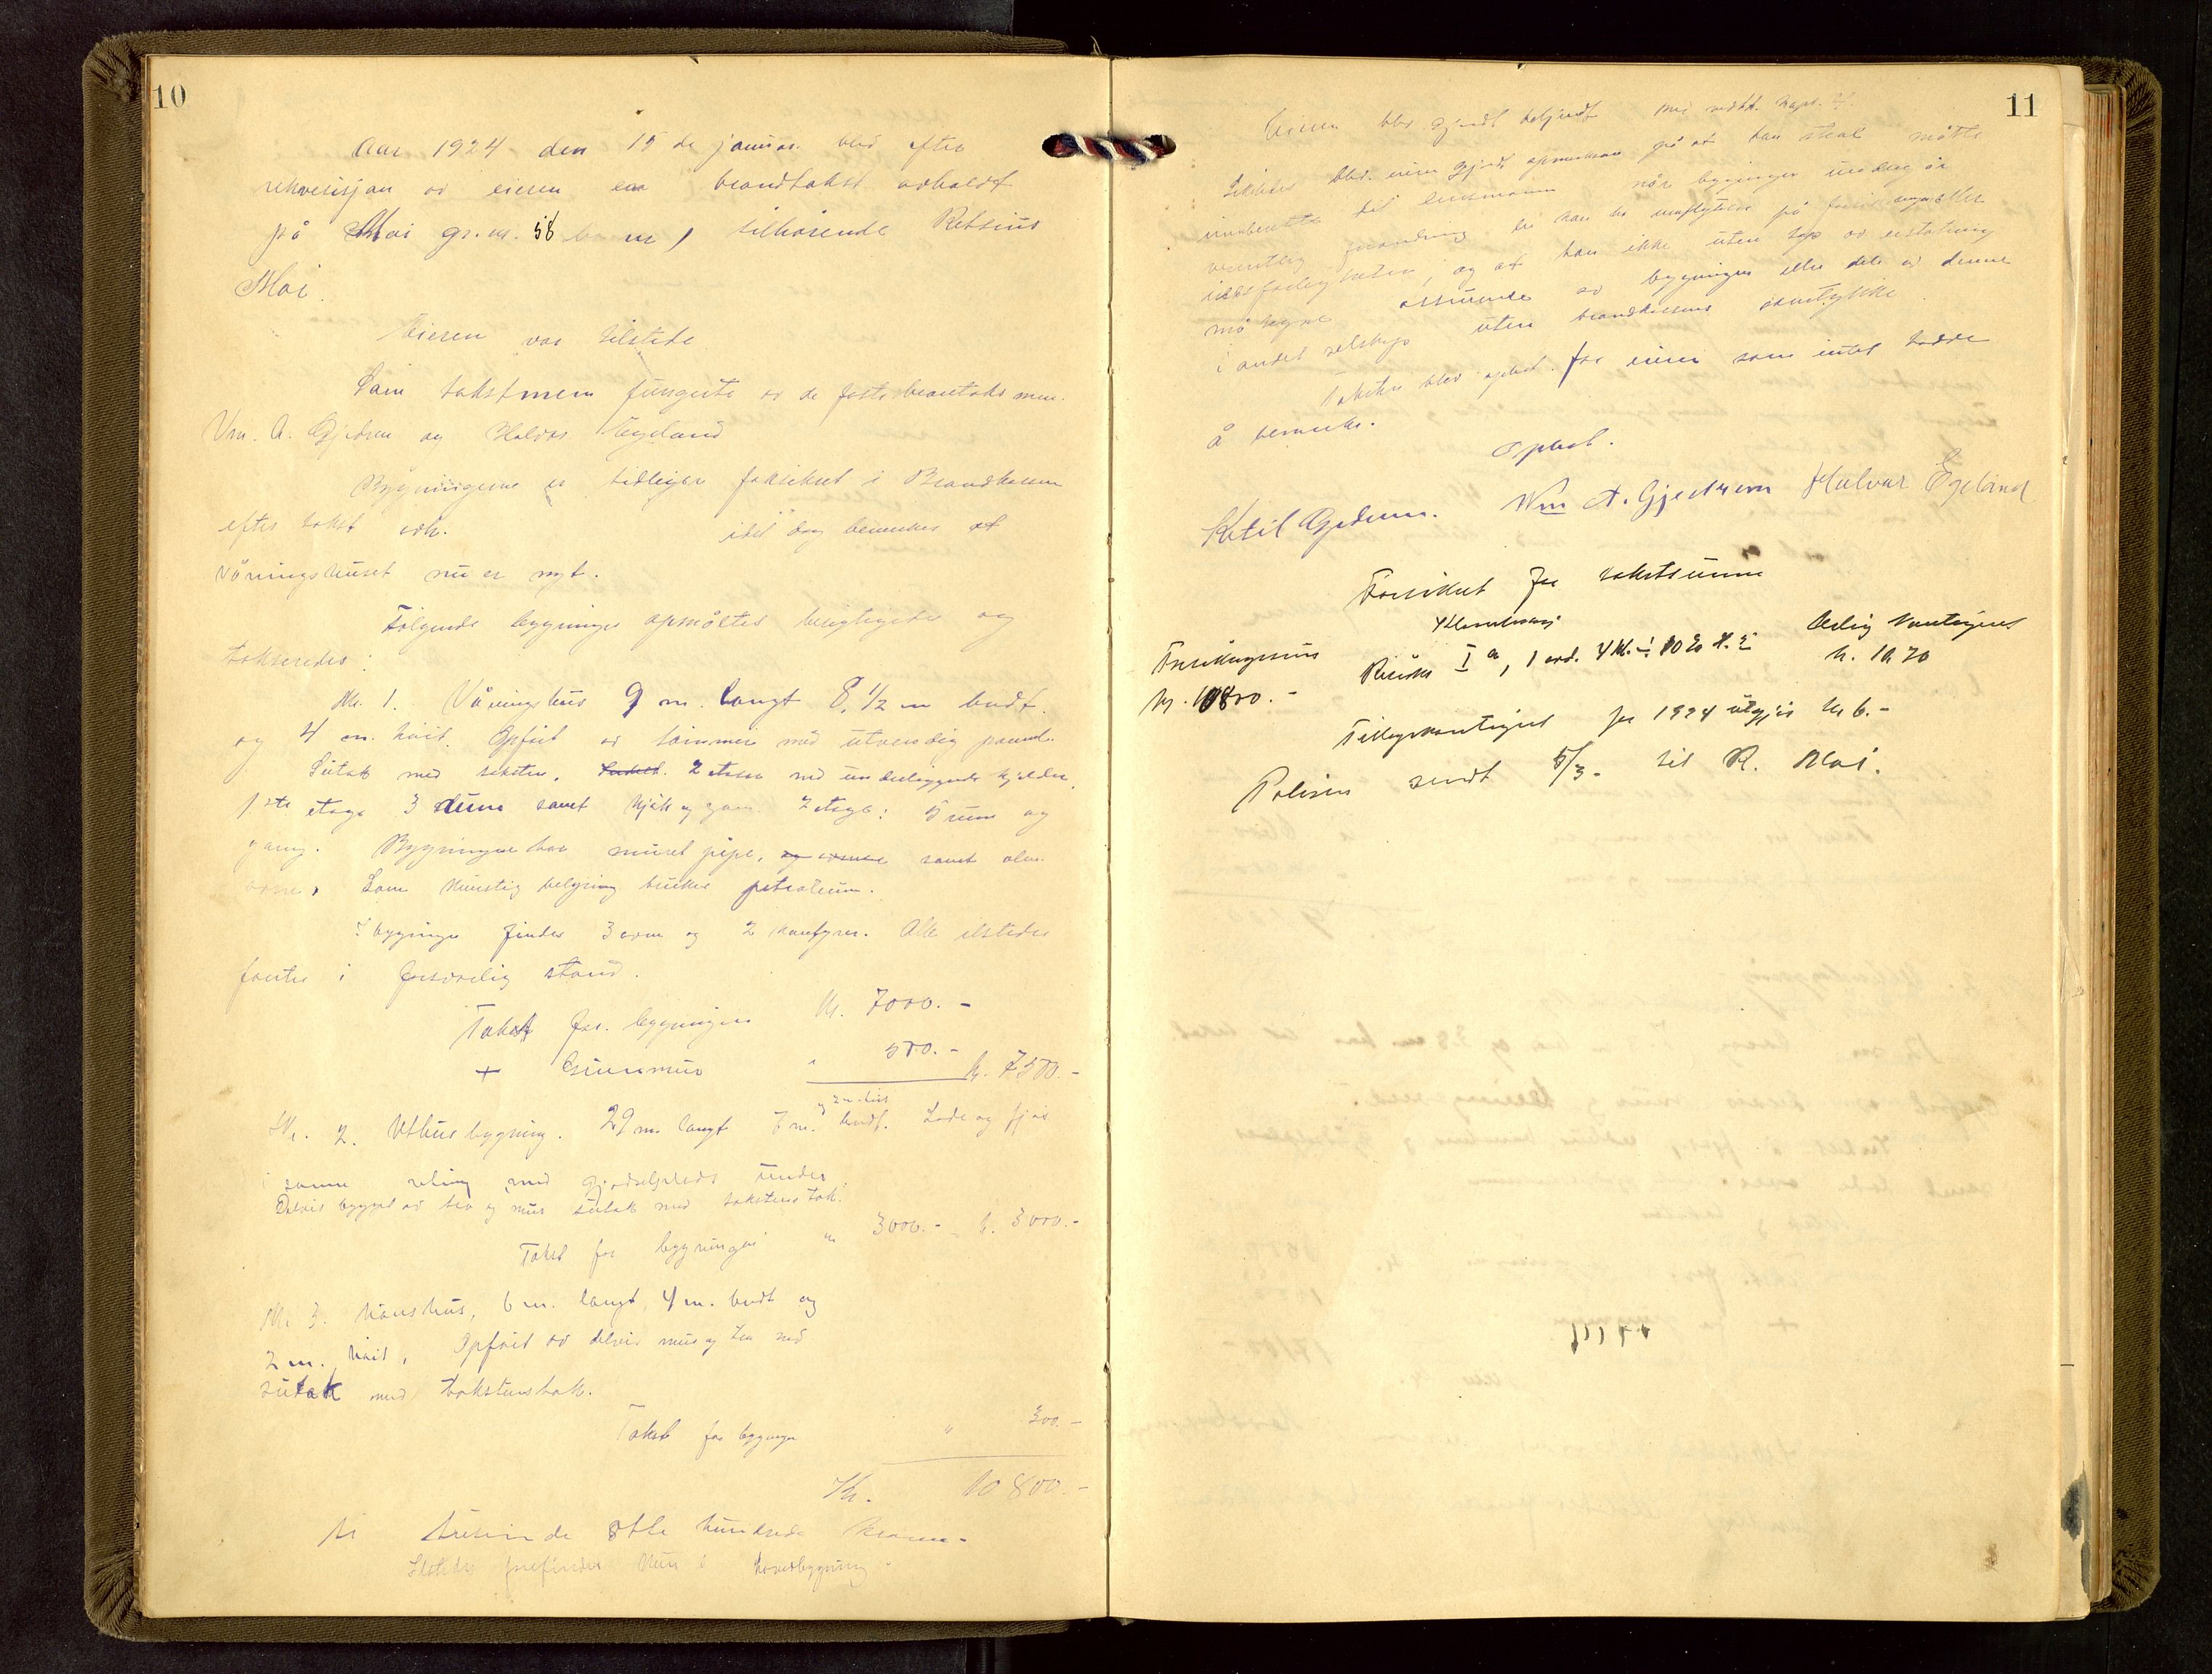 10
Aar 1924 den 15 de januar. blev efter
rekvisisjon av eieren en brandtakst avholdt
på Moi gr.nr. 58 br nr 1 tilhørende Retsius
Moi.
Eieren var tilstede
Som takstmenn fungerte av de faste brantaksmen.
Wm. A. Gjedrem og Halvor Egeland
Bygningene er tidligere forsikret i Brandkassen
efter takst avh. idet dog bemerkes at
våningshuset nu er nyt.
Følgende bygninger opmåltes besigtigedes og
takseredes:
Nr. 1. Våningshus 9 m. langt 8,1/2 m bredt
og 4 m. høit. Opført av tømmer med utvendig panel.
Sutak med taksten. 2 etasse med underliggende kjelder.
1ste etage 3 rum samt kjøk og gang 2 etage: 5 rum og
gang. Bygningen har muret pipe, og ovne samt
ovne. Som kunstig belysning brukes petroleum.
I bygningen findes 3 ovne og 2 komfyrer. Alle ilsteder
fantes i forsvarlig stand.
Takst for bygningen Kr. 7000.-
+ Grunmur " 500.- Kr. 7500.-
og 2 m. høit
Nr. 2. Uthusbygning. 29 m. langt 7 m. bredt. Lade og fjøs
i samme rekning med gjødselplads under
Delvis bygget av tre og mur sutak med takstens tak.
Takst for bygningen " 3000.- Kr. 3000.-
Nr 3. Hønshus, 6 m. langt, 4 m. bredt og
2 m. høit, Opført av delvis mur og tre med
sutak med takstenstak.
Takst for bygningen " 300.-
Kr. 10800.-
ti tusinde otte hundrede kroner.
Ilsteder forefindes kun i hovedbygning.
11
Eieren blev gjordt bekjendt med vedtk. kapt.
Likeledes blev eieren gjort opmerksom på at han skal måtte
innberette til lensmann når bygningen undergår
vesentlig forandring der kan ha innflytelse på
ildsfarligheten, og at han ikke uten tap av erstatning
må tegne assuranse av bygningen eller dele av denne
i andet selskap uten brandkassens samtykke.
Taksten blev oplest for eieren som intet hadde
å bemerke.
Oplest.
Ketil Gjedrem. Wm A. Gjedrem Halvar Egeland
Forsikret for takstsumme
Forsikringssum Risiko I a, 1 ord. 4 Kl. Aarlig Kontingent
Kr. 10800.- kr. 18 70
Tilleggskontingent for 1924 utgjør Kr 6.-
Polisen sendt 5/3 - til R. Moi.